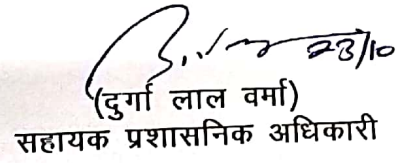 23/10
(दुर्गा लाल वर्मा)
सहायक प्रशासनिक अधिकारी